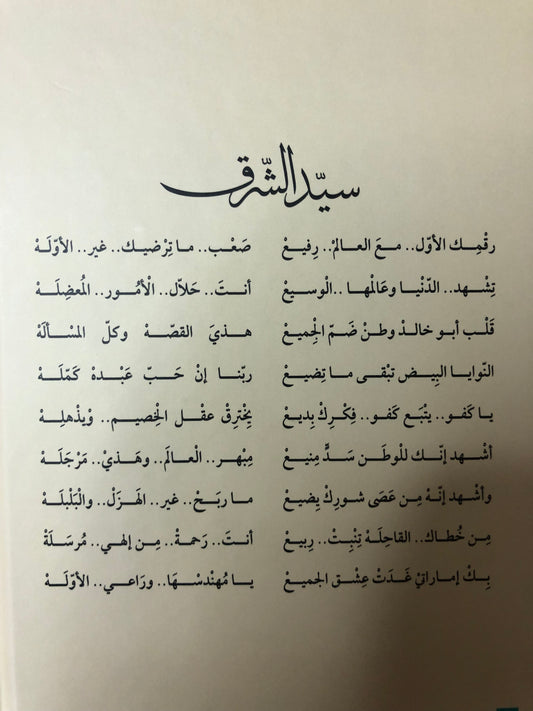 سيّد الشّرق
رقْمِك الأوّل.. معَ العالمْ.. رِفيعْ صَعْب.. ما تِرْضيك.. غير.. الأوّلَهْ
تِشْهد.. الدّنْيا وعَالمْها ..الْوسيعْ أنتَ.. حَلاّل.. الْأمُور.. المُعضِلَهْ
قَلب أبو خالدْ وطنْ ضَمّ الجِميعْ هذيَ القصّهْ وكلّ المسْألَهْ
النّوايا البِيض تبْقى ما تِضيعْ ربّنا إنْ حَبّ عَبْدهْ كَمّلَهْ
يا كَفو.. يتْبَع كَفو.. فِكْرِكْ بِديعْ يِخْتِرِقْ عقْل الْخِصيم.. وْيذْهلِهْ
أشْهد إنّك للْوطَن سَدٍّ مِنيعْ مِبْهر.. الْعالمَ.. وهَذيْ.. مَرْجَلَهْ
وأشْهد إنّهْ مِن عَصَى شورِكْ يِضيعْ ما ربَحْ.. غير.. الهَزِلْ.. والْبَلْبلَهْ
مِن خُطاك.. القاحِلَهْ تِنْبِتْ.. رِبيعْ أنتَ.. رَحمةْ.. مِن إلهي.. مُرسَلَةْ
بِكْ إماراتيْ غَدَتْ عِشْق الجميعْ يا مُهنْدسْها.. ورَاعي.. الأوّلَهْ